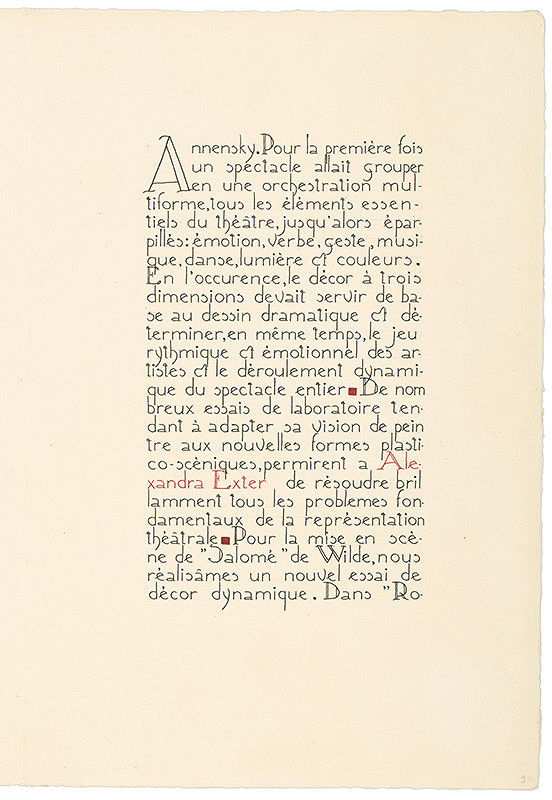 Annensky. Pour la première fois
un spectacle allait grouper
en une orchestration mul-
tiforme, tous les éléments essen-
tiels du théâtre, jusqu'alors épar-
pillés: émotion, verbe, geste, musi-
que, danse, lumière et couleurs.
En l'occurence, le décor à trois
dimensions devait servir de ba-
se au dessin dramatique et dé-
terminer, en même temps, le jeu
rythmique et émotionnel des ar-
tistes et le déroulement dynami-
que du spectacle entier ■ De nom
breux essais de laboratoire ten-
dant à adapter sa vision de pein
tre aux nouvelles formes plasti-
co-scéniques, permirent a Ale-
xandra Exter de résoudre bril
lamment tous les problèmes fon-
damentaux de la représentation
théâtrale ■ Pour la mise en scè-
ne de "Salomé" de Wilde, nous
réalisâmes un nouvel essai de
décor dynamique. Dans "Ro-
9